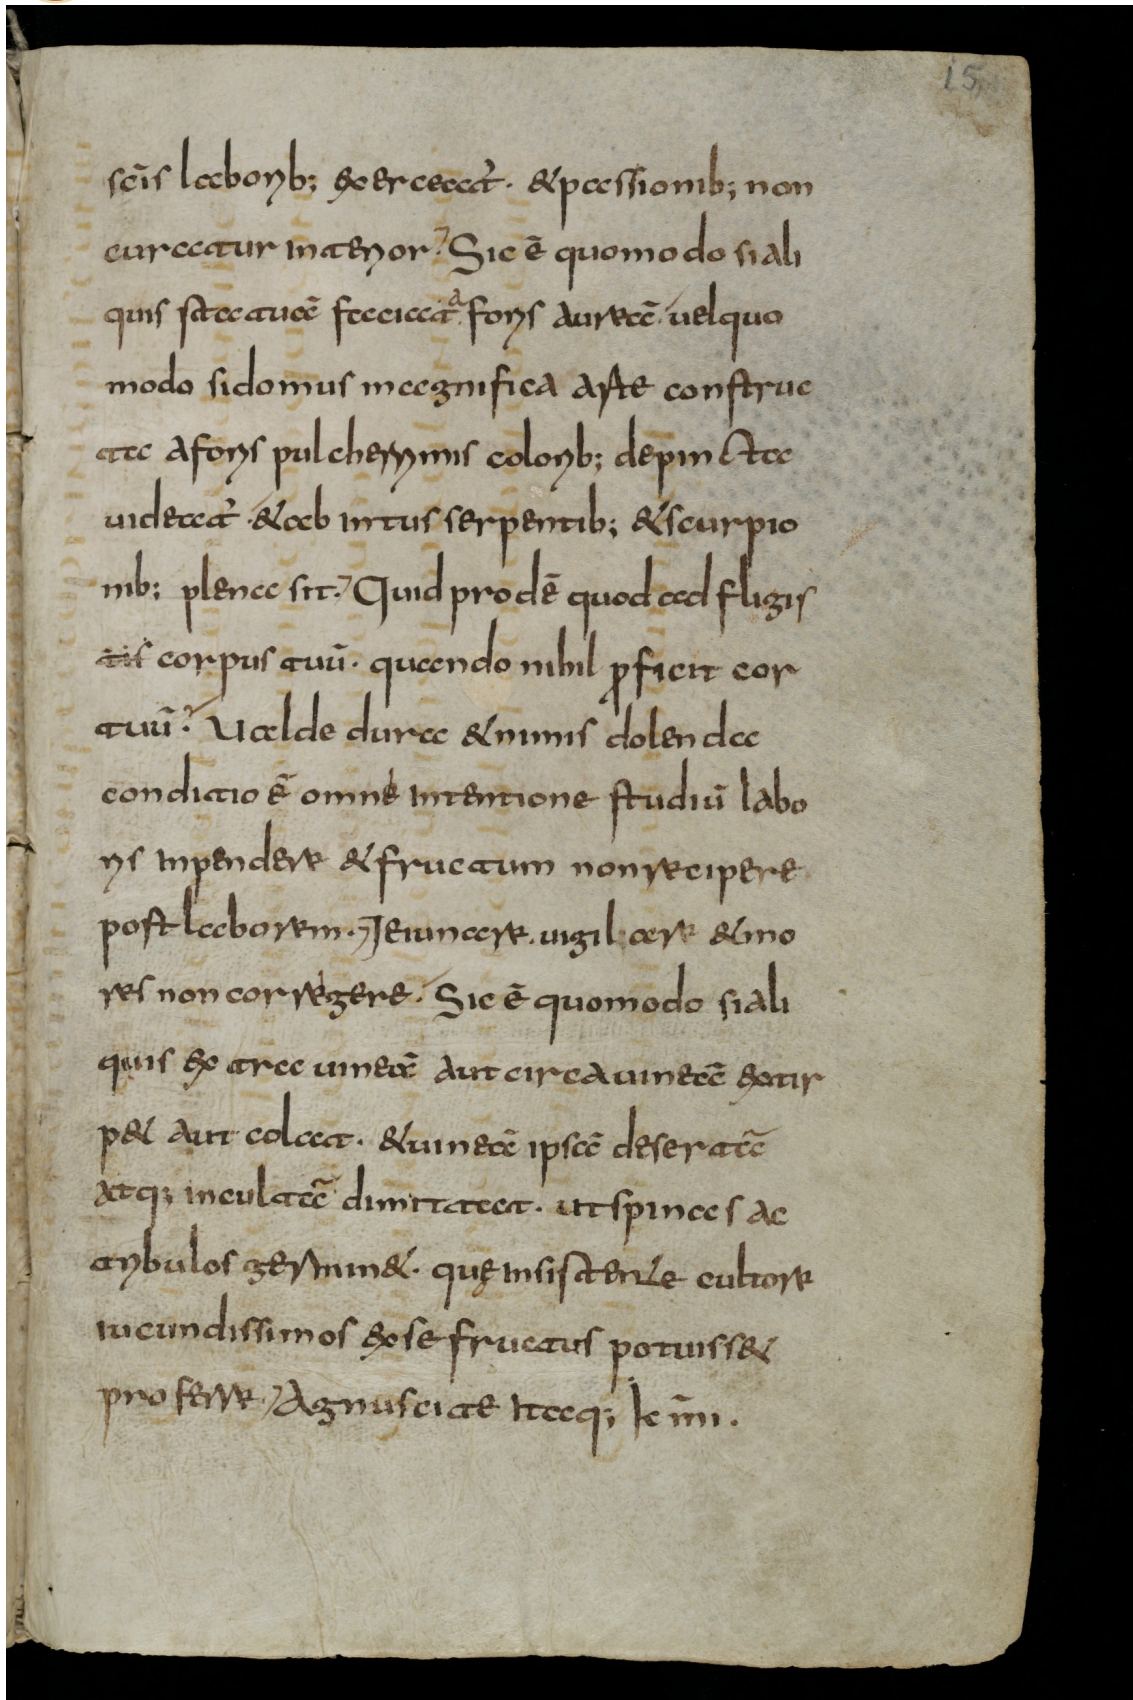 15
scīs laborib; exerceat̉. & passionib; non
curatur interior? Sic ē quomodo si ali
quis statuā faciatͣ foris aureā. uel quo
modo si domus magnifica arte construc
ta a foris pulcherrimis colorib; depincta
uideat̉. & ab intus serpentib; & scurpio
nib; plena sit? Quid prodē quod adfligis
tis corpus tuū. quando nihil ꝓficit cor
tuū? Ualde dura & nimis dolenda
condicio ē omnē intentione studiū labo
ris inpendere & fructum non recipere
post laborem. Ieiunare. uigilare & mo
res non corregere. Sic ē quomodo si ali
quis extra uineā aut circa uineā extir
p& aut colat. & uineā ipsā desertā
atq; incultā dimittat. ut spinas ac
tribulos germin&. quę insistente cultore
iucundissimos ex se fructus potuiss&
proferre. Agnuscite itaq; k̄ m̄i.